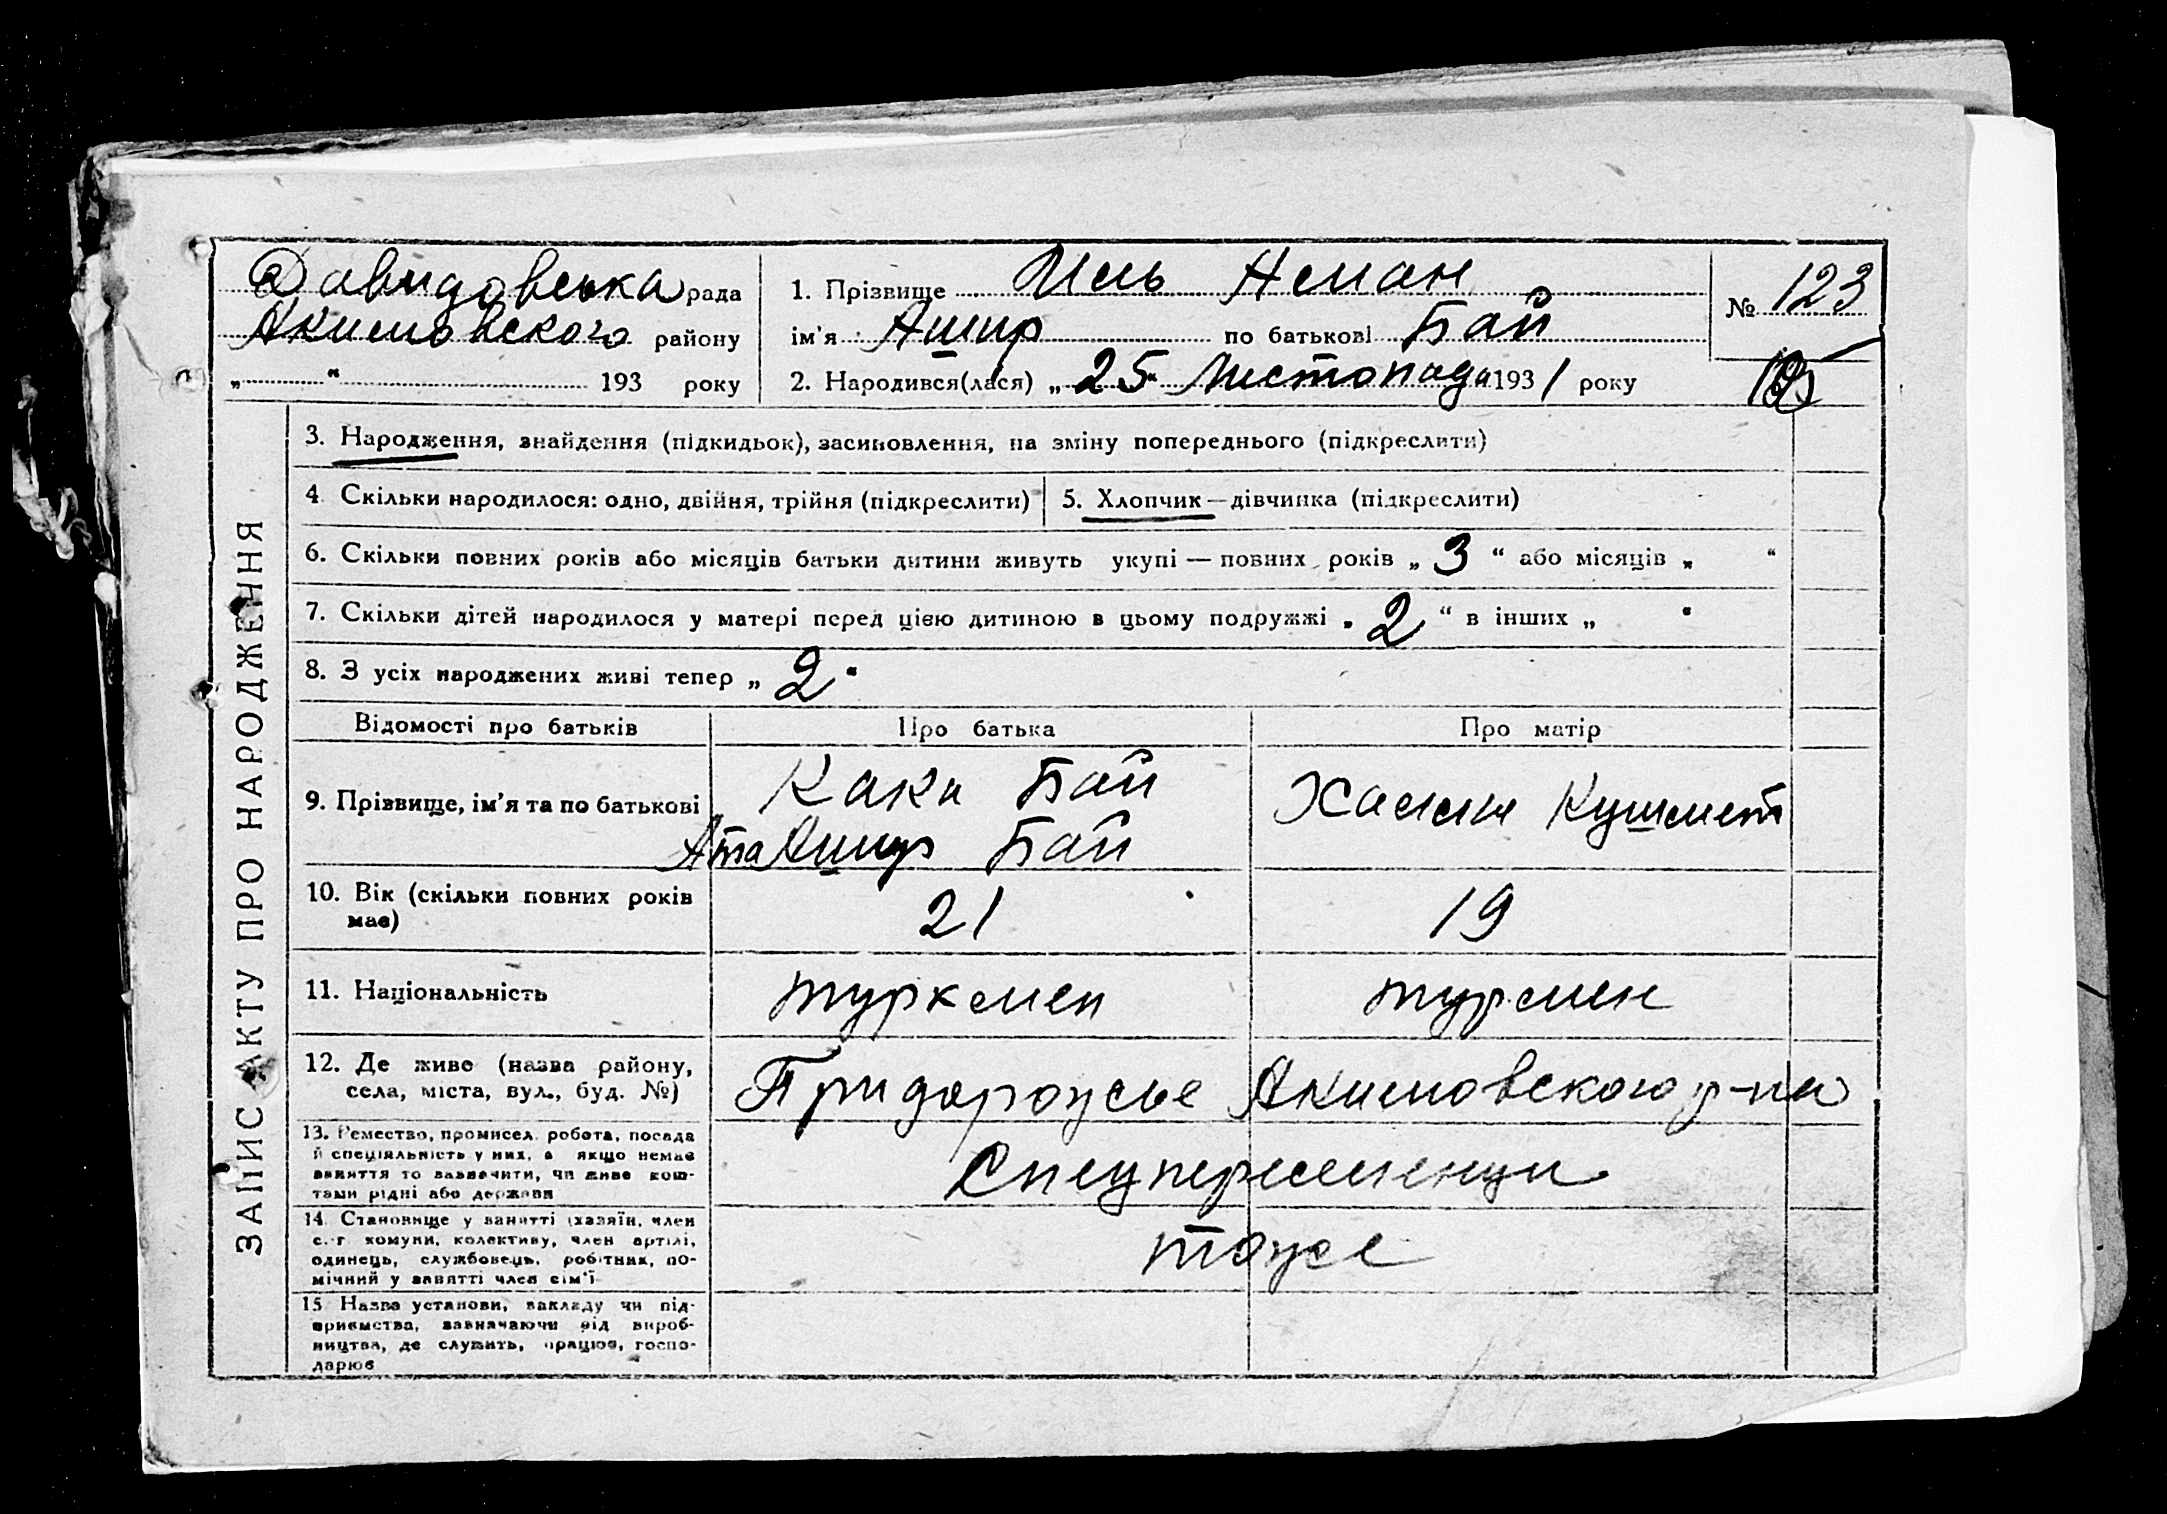 Давидовська рада
Акимовского району
„ “ 193 року
1. Прізвище Иль Аман
ім'я Ашир по батькові Бай
2. Народився(лася) „25“ Листопада 1931 року
№ 123
ЗАПИС АКТУ ПРО НАРОДЖЕННЯ
3. Народження, знайдення (підкидьок), засиновлення, на зміну попереднього (підкреслити)
4. Скільки народилося: одно, двійня, трійня (підкреслити)
5. Хлопчик — дівчинка (підкреслити)
6. Скільки повних років або місяців батьки дитини живуть укупі — повних років „3“ або місяців „ “
7. Скільки дітей народилося у матері перед цією дитиною в цьому подружжі „2“ в інших „ “
8. З усіх народжених живі тепер „2“
Відомості про батьків
Про батька
Про матір
9. Прізвище, ім'я та по батькові
Кака Бай
Ата Ашир Бай
Кушмет
10. Вік (скільки повних років
має)
21
19
11. Національність
туркмен
турмен
12. Де живе (назва району,
села, міста, вул., буд. №)
Придорожье Акимовского р-на
13. Ремество, промисел, робота, посада
й спеціяльність у них, а якщо немає
заняття то зазначити, чи живе кош-
тами рідні або держави
Спецпереселенци
14. Становище у занятті (хазяїн, член
с.-г комуни, колективу, член артілі,
одинець, службовець, робітник, по-
мічний у занятті член сім'ї
тоже
15 Назва установи, закладу чи під-
приємства, зазначаючи від вироб-
ництва, де служить, працює, госпо-
дарює